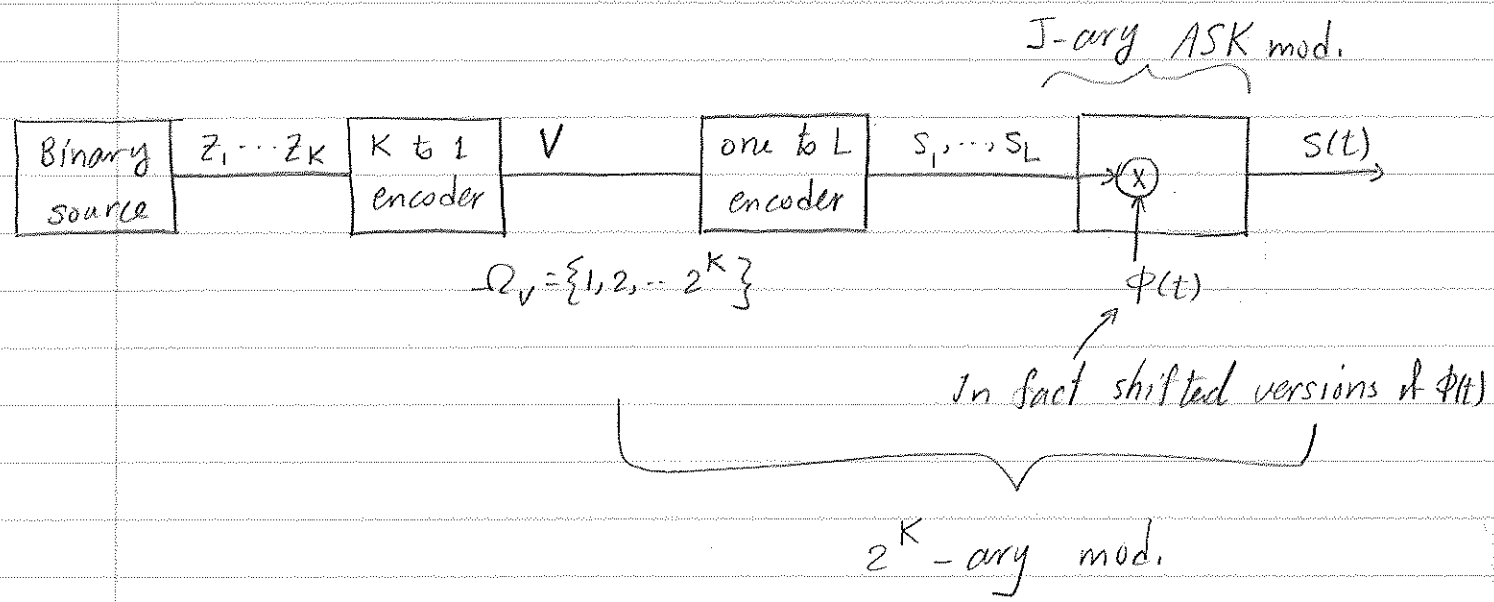 J-ary ASK mod.
Binary source
Z₁ ... Z_K
K to 1 encoder
V
one to L encoder
S₁, ..., S_L
x
S(t)
Ω_V = {1, 2, .. 2^K}
φ(t)
In fact shifted versions of φ(t)
2^K - ary mod.